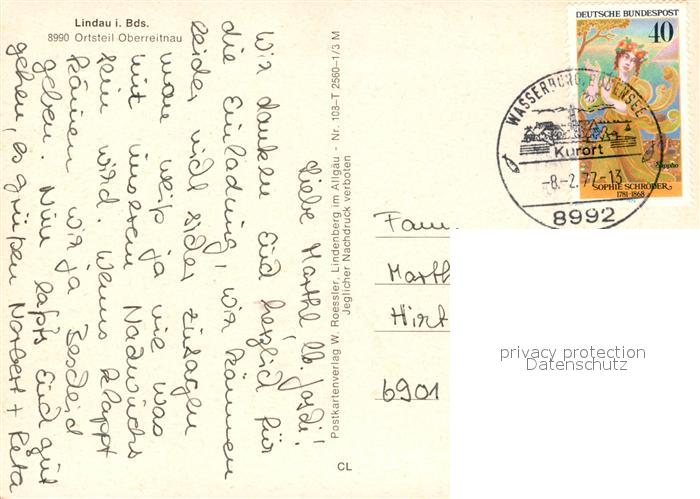 Lindau i. Bds.
8990 Ortsteil Oberreitnau
Liebe Marthl lb. Jordi!
Wir danken Euch herzlich für
die Einladung, wir können
leider nicht sicher zusagen
man weiß ja nie was
mit unserem Nachwuchs
sein wird. Wenns klappt
können wir ja Bescheid
geben. Nun laßts Euch gut
gehen, es grüßen Norbert + Reta
Postkartenverlag W. Roessler, Lindenberg im Allgäu - Nr. 108-T 2560-1/3 M
Jeglicher Nachdruck verboten
CL
DEUTSCHE BUNDESPOST
40
Sappho
SOPHIE SCHRÖDER
1781-1868
WASSERBURG, BODENSEE
Kurort
-8.-2.77-13
8992
Fam
Marth
Hirt
6901
privacy protection
Datenschutz